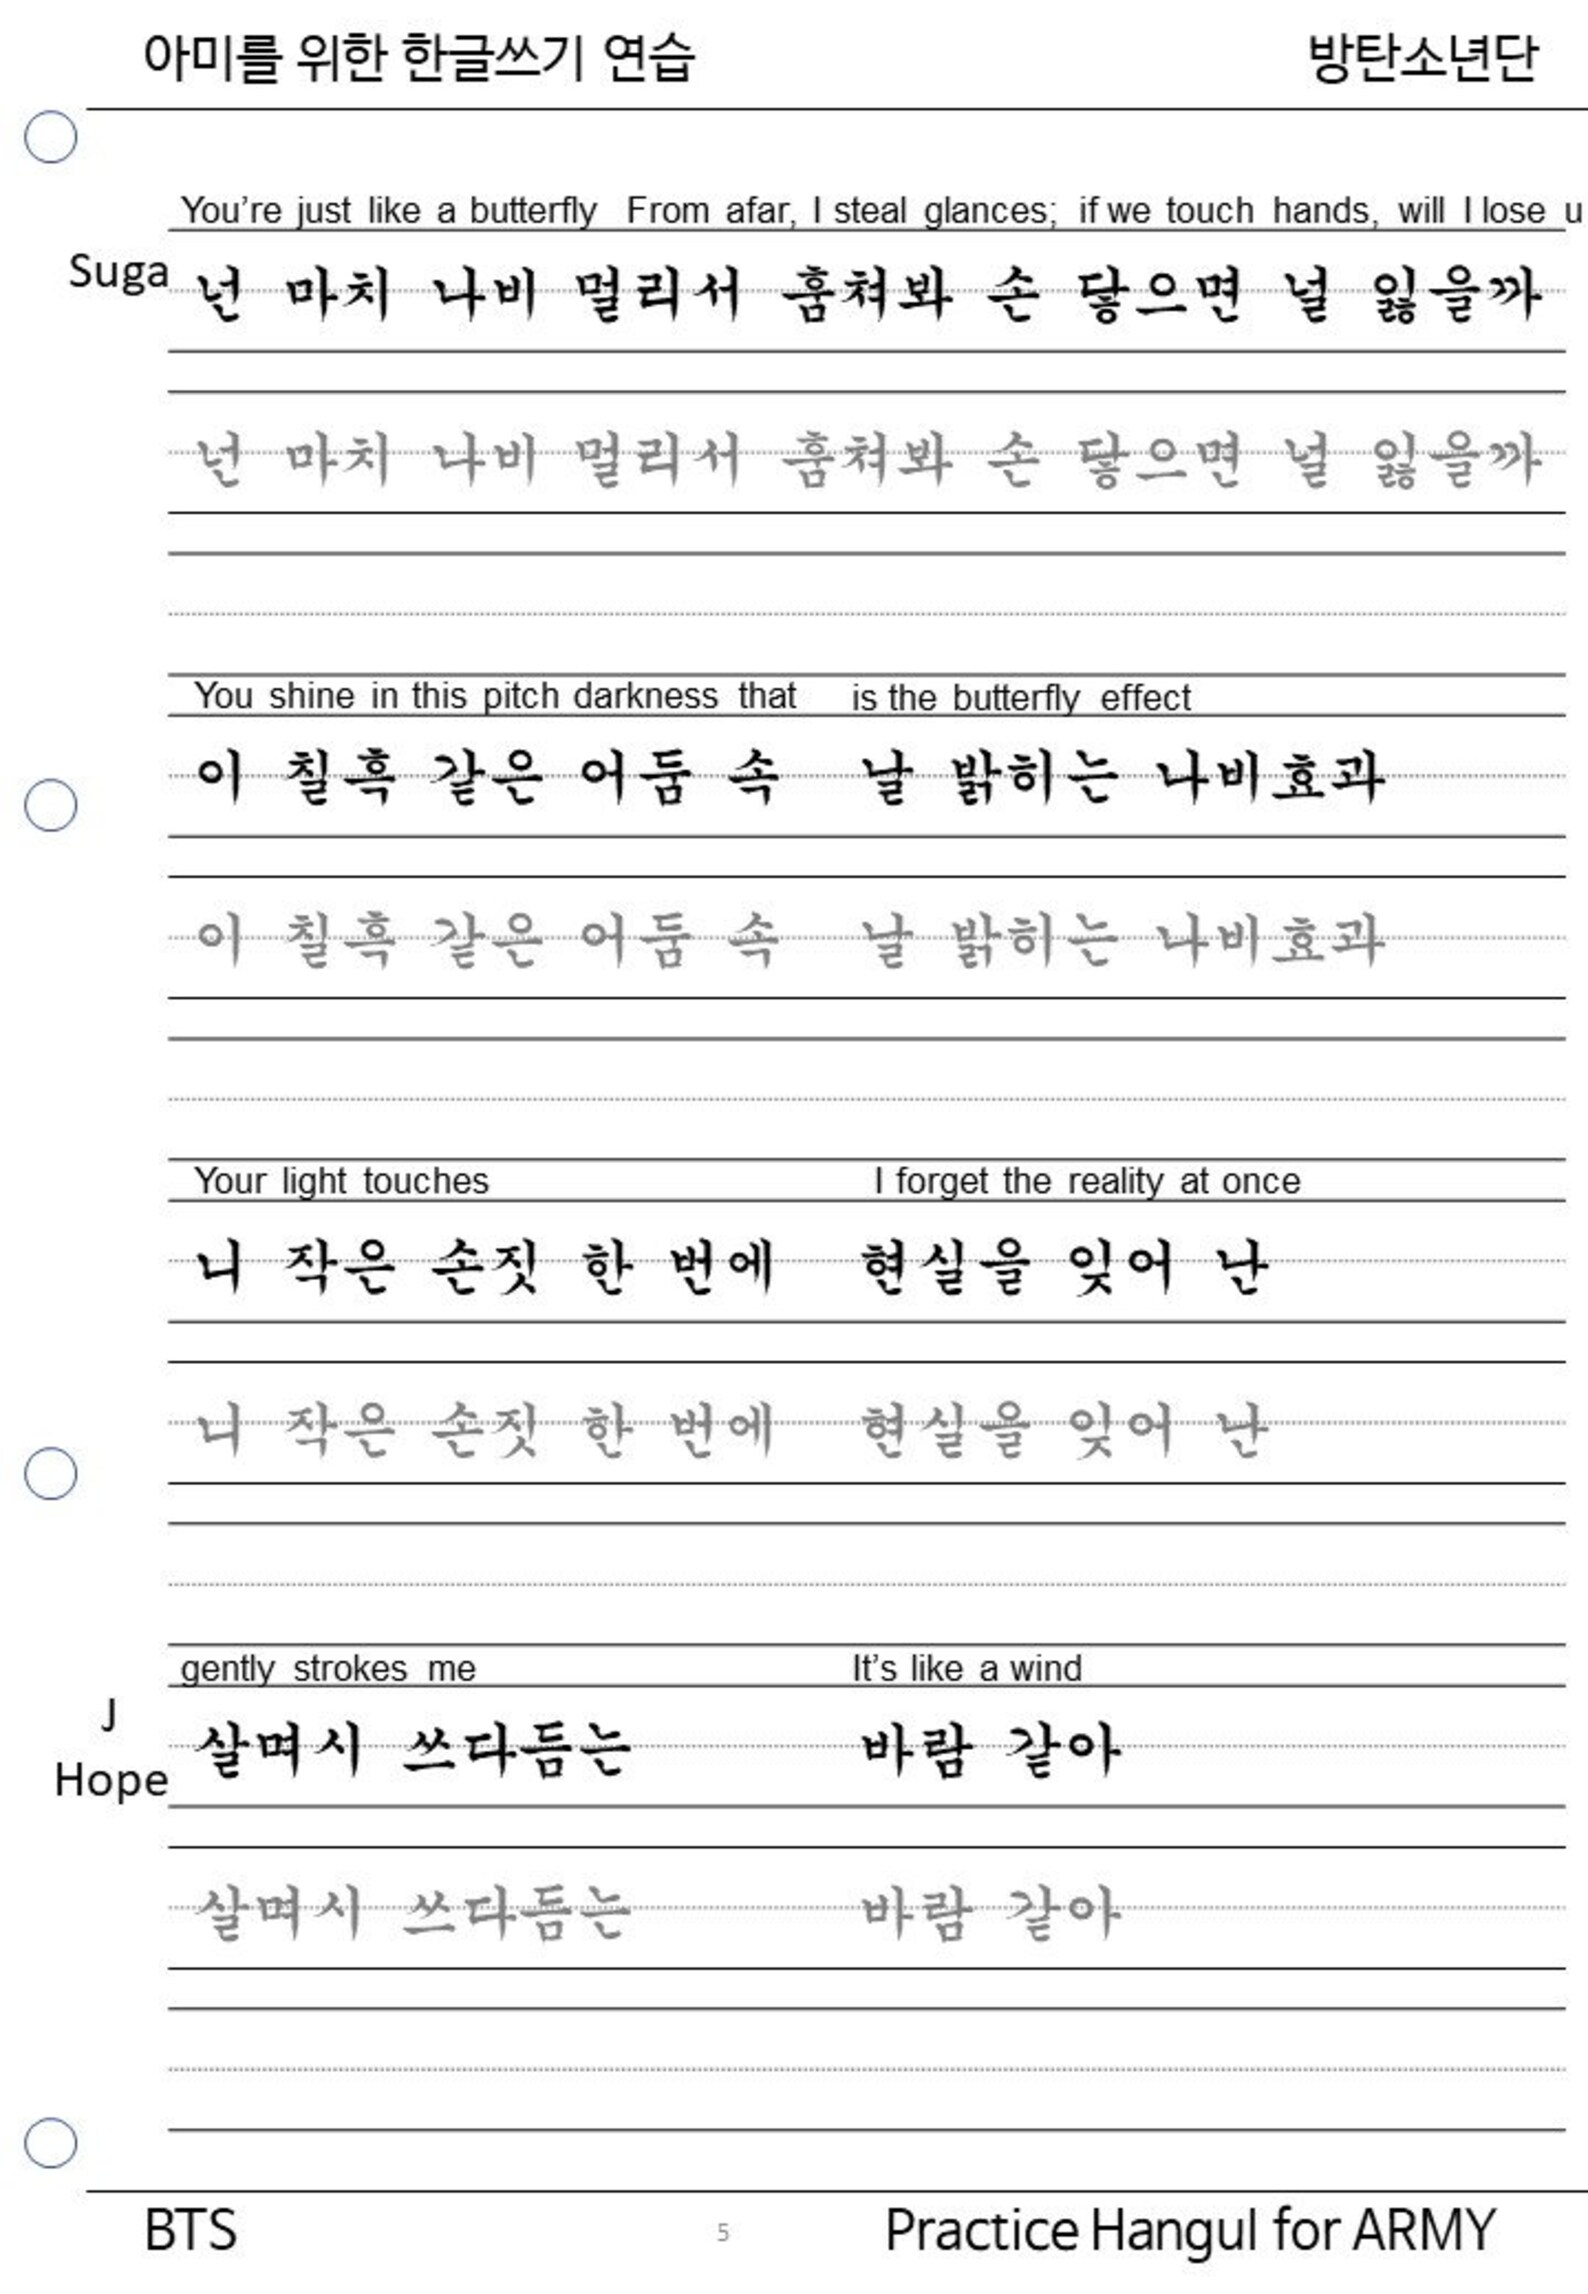 아미를 위한 한글쓰기 연습 방탄소년단
You're just like a butterfly From afar, I steal glances; if we touch hands, will I lose u
Suga 넌 마치 나비 멀리서 훔쳐봐 손 닿으면 널 잃을까
넌 마치 나비 멀리서 훔쳐봐 손 닿으면 널 잃을까
You shine in this pitch darkness that is the butterfly effect
이 칠흑 같은 어둠 속 날 밝히는 나비효과
이 칠흑 같은 어둠 속 날 밝히는 나비효과
Your light touches I forget the reality at once
니 작은 손짓 한 번에 현실을 잊어 난
니 작은 손짓 한 번에 현실을 잊어 난
gently strokes me It's like a wind
J Hope 살며시 쓰다듬는 바람 같아
살며시 쓰다듬는 바람 같아
BTS 5 Practice Hangul for ARMY